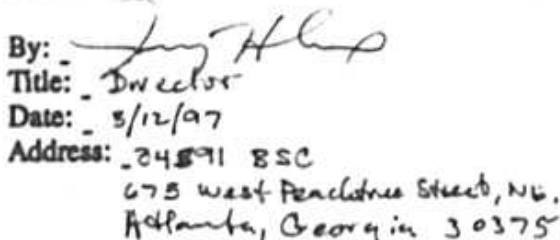 By:
Title: Director
Date: 3/12/97
Address: 34S91 BSC
675 West Peachtree Street, NE.
Atlanta, Georgia 30375